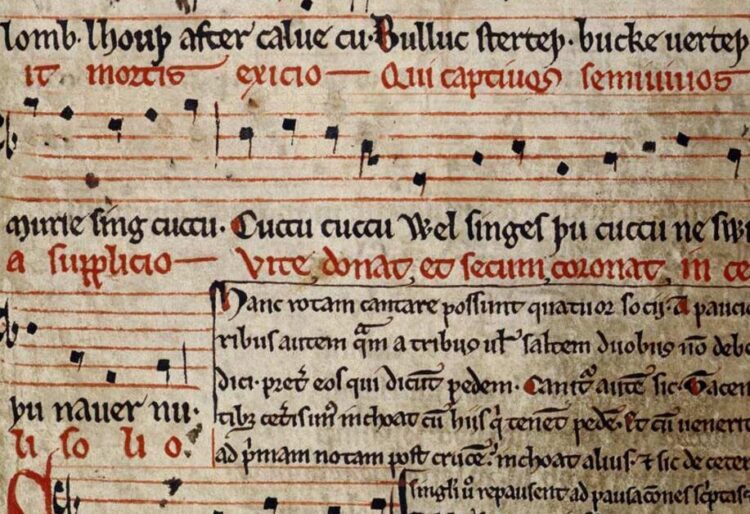 lomb· lhouþ after calue cu· Bulluc stertep· bucke uertep
it mortis exicio— Qui captiuos semiuiuos
murie sing cuccu· Cuccu cuccu Wel singes þu cuccu ne swi
a supplicio— Vite donat, et secum coronat, in ce
þu nauer nu·
li so li o.
Hanc rotam cantare possunt quatuor socij· A paucio
ribus autem qͣm a tribus ul' saltem duobus nō debe
dici· pret' eos qui dicūt pedem· Canit' autē sic· Tacen
tibꝫ cet'is unꝰ inchoat cū hiis q̇ tenēt pedē· Et cū uenerit
ad p'mam notam post crucē; inchoat alius· ⁊ sic de ceter
singli ū repausent ad pausacōnes sc'ptas